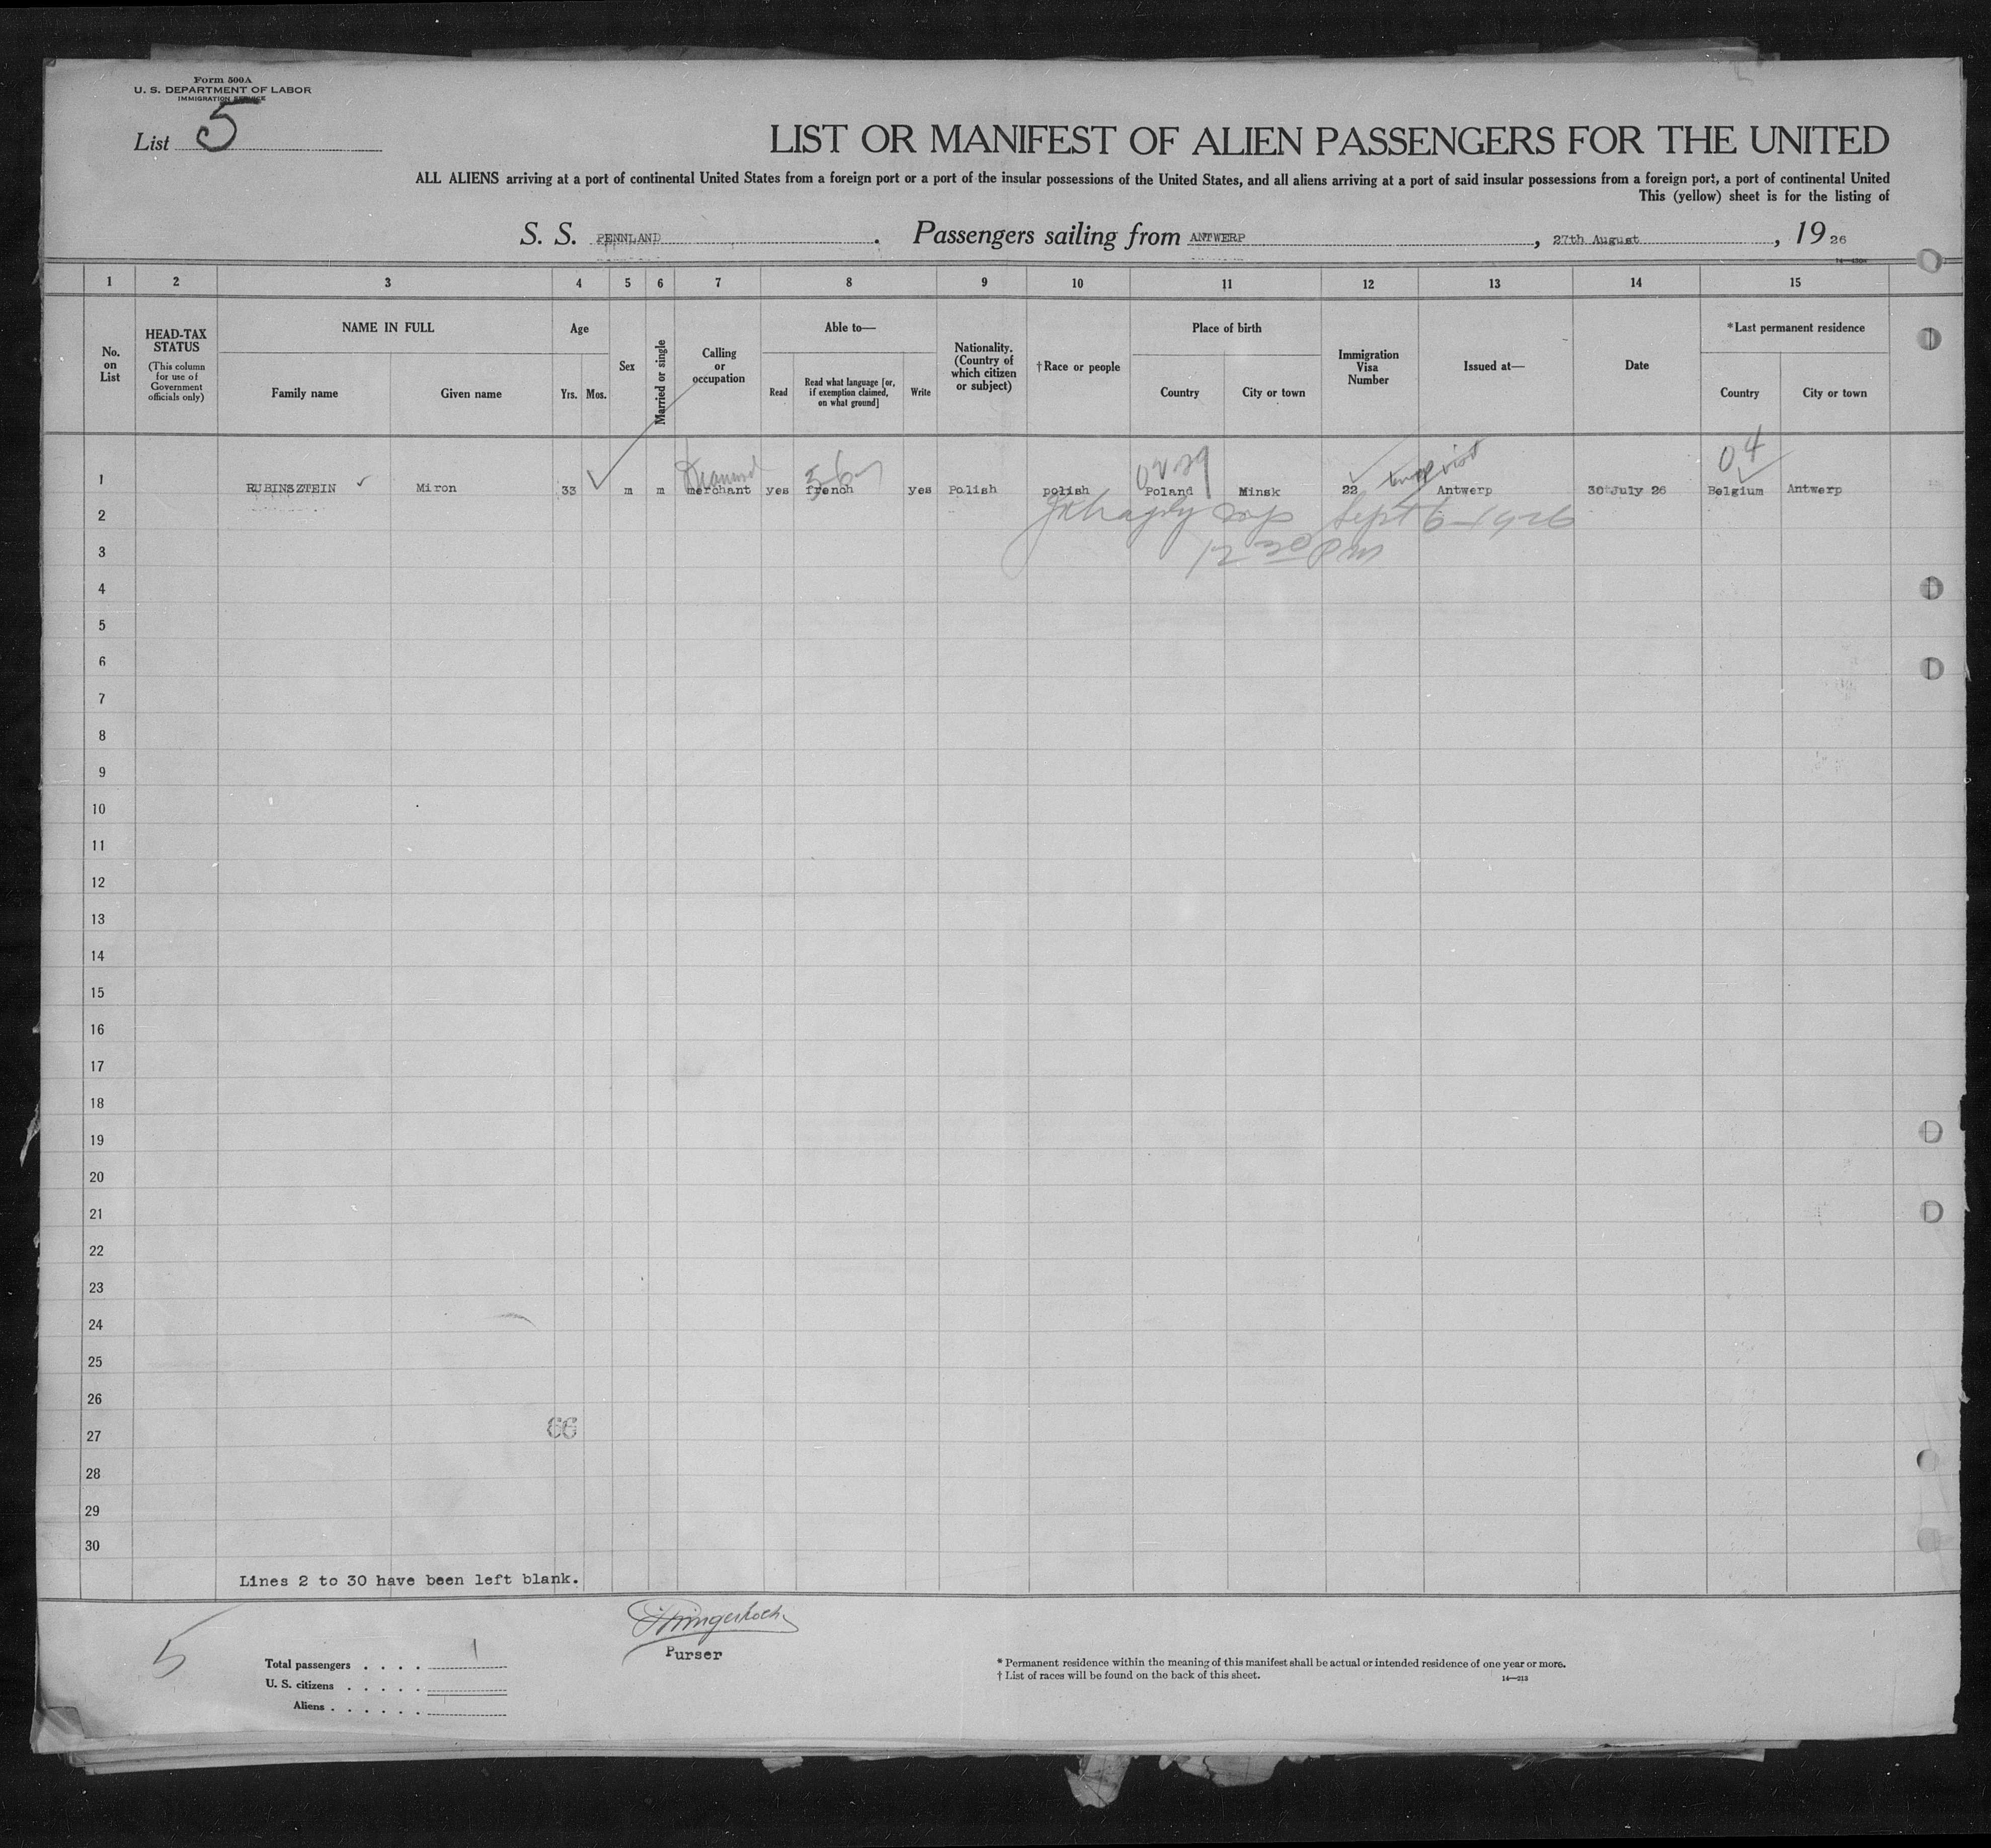 Form 500A
U. S. DEPARTMENT OF LABOR
IMMIGRATION SERVICE
List 5
LIST OR MANIFEST OF ALIEN PASSENGERS FOR THE UNITED
ALL ALIENS arriving at a port of continental United States from a foreign port or a port of the insular possessions of the United States, and all aliens arriving at a port of said insular possessions from a foreign port, a port of continental United
This (yellow) sheet is for the listing of
S. S. PENNLAND. Passengers sailing from ANTWERP, 27th August, 1926
1 2 3 4 5 6 7 8 9 10 11 12 13 14 15
No. on List
HEAD-TAX STATUS
(This column for use of Government officials only)
NAME IN FULL
Family name
Given name
Age
Yrs.
Mos.
Sex
Married or single
Calling or occupation
Able to—
Read
Read what language [or, if exemption claimed, on what ground]
Write
Nationality. (Country of which citizen or subject)
†Race or people
Place of birth
Country
City or town
Immigration Visa Number
Issued at—
Date
*Last permanent residence
Country
City or town
Diamond 04
1 RUBINSZTEIN Miron 33 m m merchant yes french yes Polish polish Poland Minsk 22 Antwerp 30 July 26 Belgium Antwerp
2 Sept 6-1926
3 12 30 PM
4
5
6
7
8
9
10
11
12
13
14
15
16
17
18
19
20
21
22
23
24
25
26
27 66
28
29
30
Lines 2 to 30 have been left blank.
Purser
5
Total passengers . . . . 1
U. S. citizens . . . . .
Aliens . . . . . .
* Permanent residence within the meaning of this manifest shall be actual or intended residence of one year or more.
† List of races will be found on the back of this sheet.
14—213